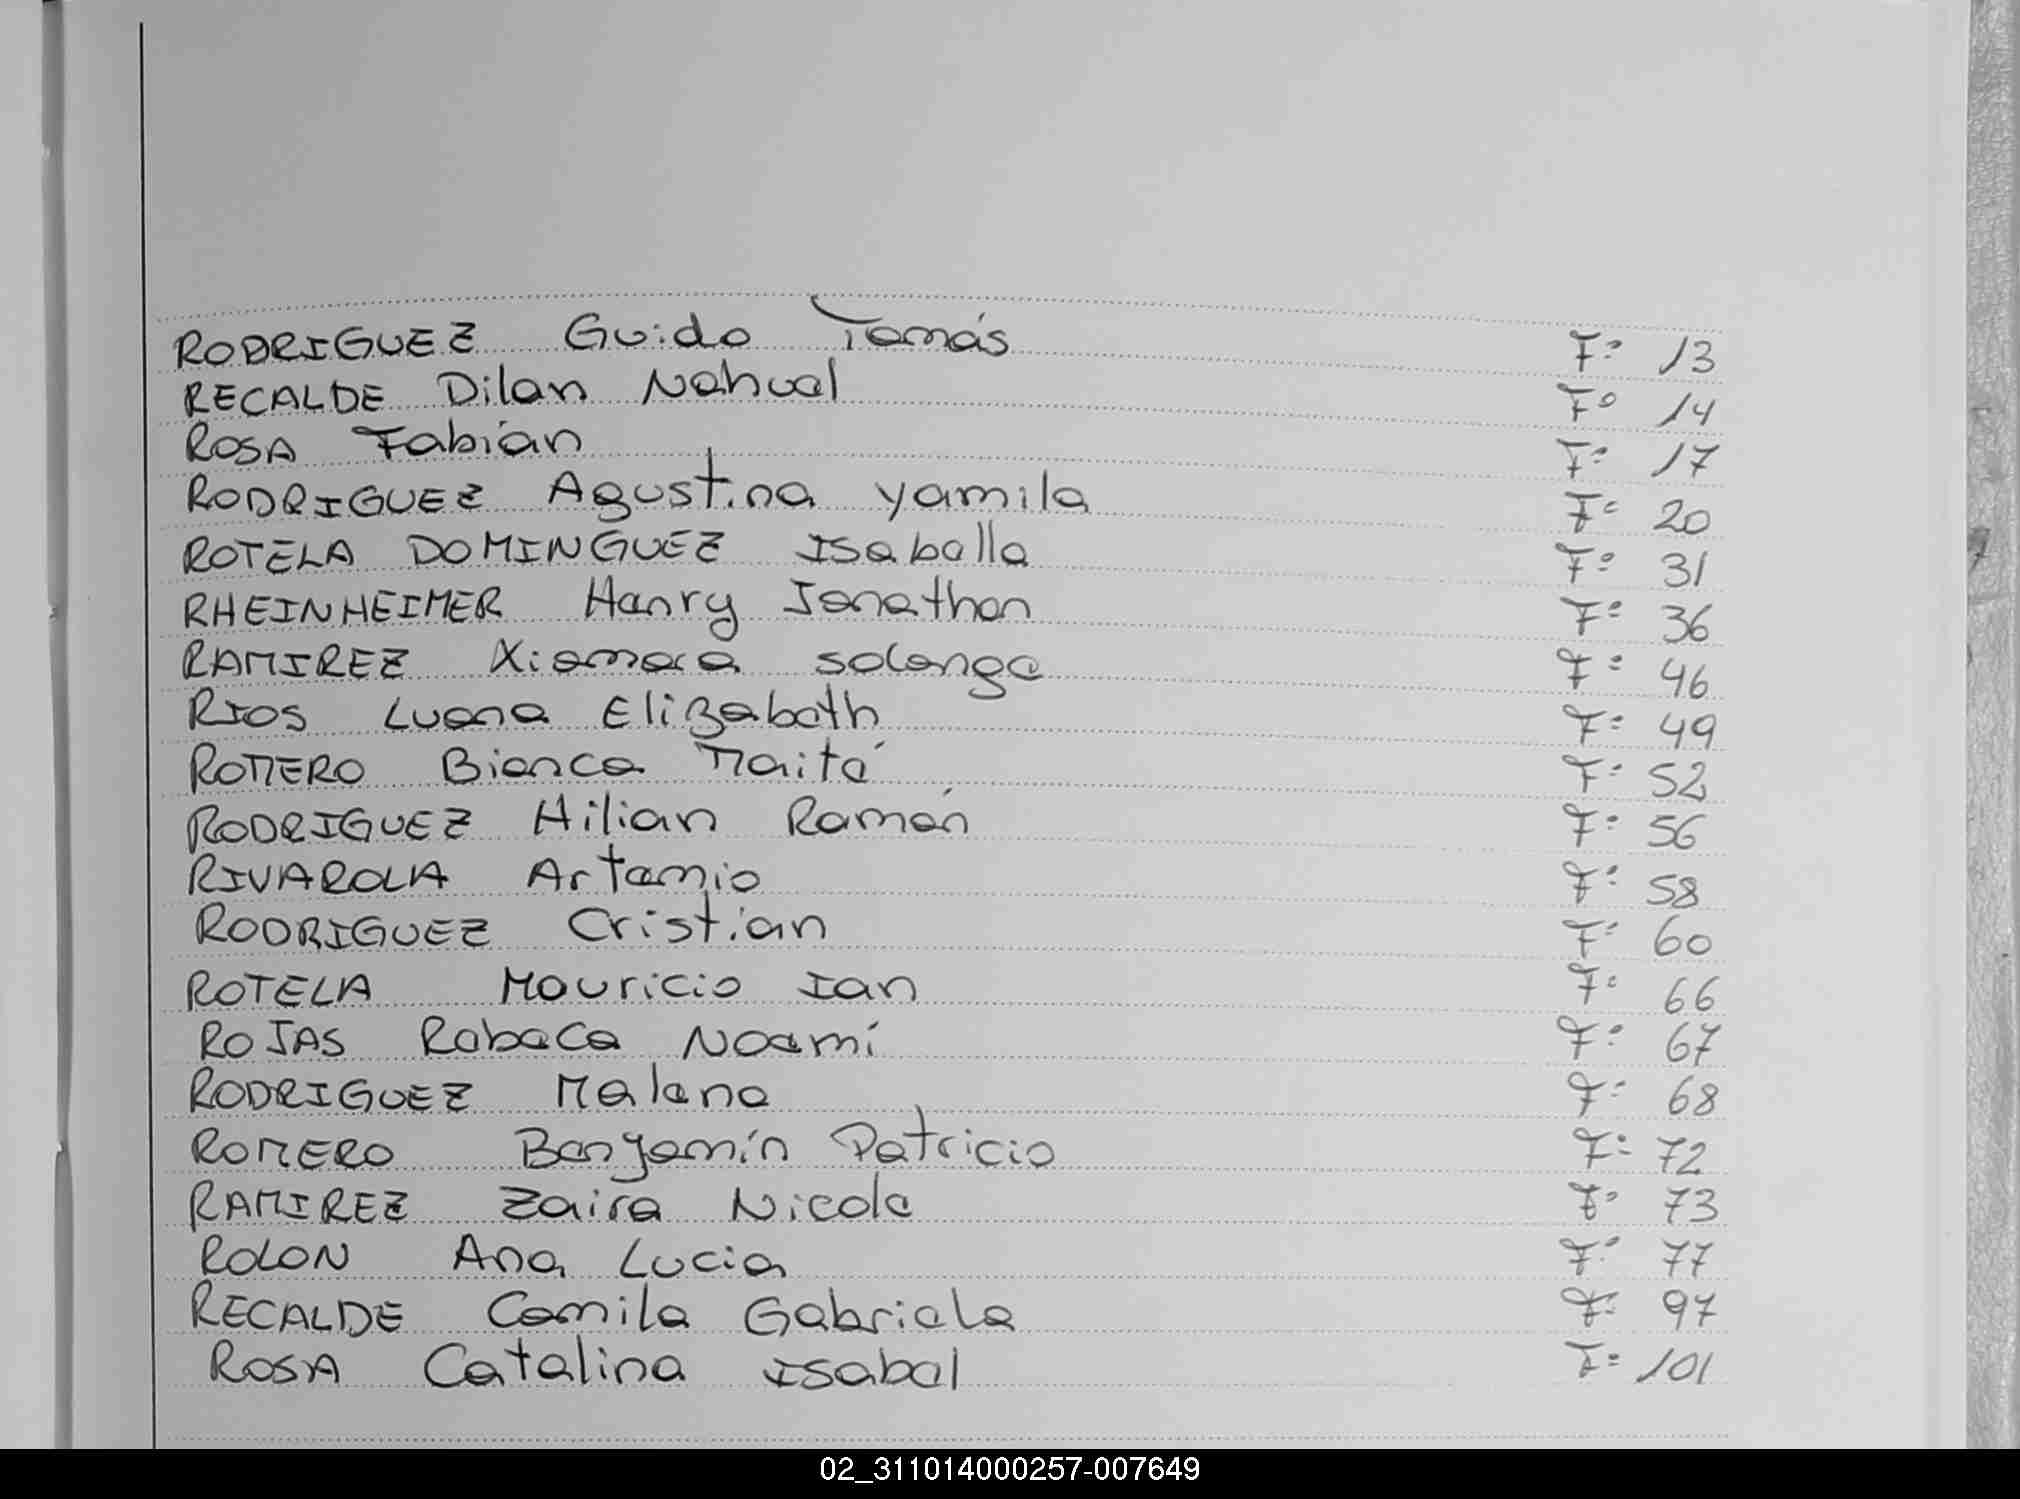 RODRIGUEZ Guido Tomás F° 13
RECALDE Dilan Nahuel F° 14
ROSA Fabián F° 17
RODRIGUEZ Agustina Yamila F° 20
ROTELA DOMINGUEZ Isabella F° 31
RHEINHEIMER Henry Jonathan F° 36
RAMIREZ Xiomara Solange F° 46
RIOS Luana Elizabeth F° 49
ROMERO Bianca Maité F° 52
RODRIGUEZ Hilian Ramón F° 56
RIVAROLA Artemio F° 58
RODRIGUEZ Cristian F° 60
ROTELA Mauricio Ian F° 66
ROJAS Rebeca Noemí F° 67
RODRIGUEZ Malena F° 68
ROMERO Benjamín Patricio F° 72
RAMIREZ Zaira Nicole F° 73
ROLON Ana Lucia F° 77
RECALDE Camila Gabriela F° 97
ROSA Catalina Isabel F° 101
02_311014000257-007649